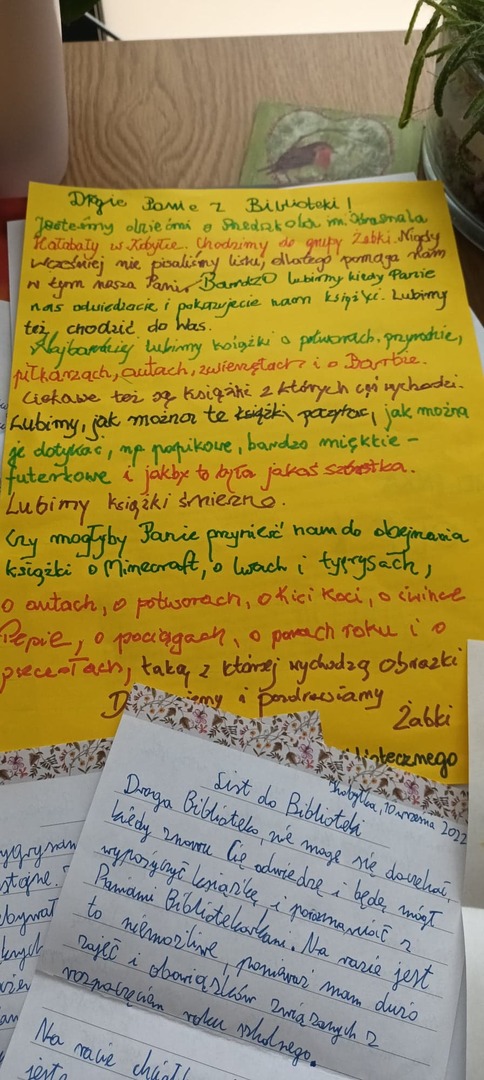 Drogie Panie z Biblioteki!
Jesteśmy dziećmi z Przedszkola im. Krasnala
Hałabały w Kobyłce. Chodzimy do grupy Żabki. Nigdy
wcześniej nie pisaliśmy listu, dlatego pomaga nam
w tym nasza Pani. Bardzo lubimy kiedy Panie
nas odwiedzacie i pokazujecie nam książki. Lubimy
też chodzić do Was.
Najbardziej lubimy książki o potworach, przyrodzie,
piłkarzach, autach, zwierzętach i o Barbie.
Ciekawe też są książki z których coś wychodzi.
Lubimy, jak można te książki poczytać, jak można
je dotykać, np papikowe, bardzo miękkie -
futerkowe i jakby to była jakaś szóstka.
Lubimy książki śmieszne.
Czy mogłyby Panie przynieść nam do obejrzenia
książki o Minecraft, o lwach i tygrysach,
o autach, o potworach, o Kici Koci, o śwince
Pepie, o pociągach, o porach roku i o
pieczęciach, taką z której wychodzą obrazki
i pozdrawiamy
Żabki
bibliotecznego
List do Biblioteki
Kobyłka, 10 września 2022
Droga Biblioteko, nie mogę się doczekać,
kiedy znowu Cię odwiedzę i będę mógł
wypożyczyć książkę i porozmawiać z
Paniami Bibliotekarkami. Na razie jest
to niemożliwe, ponieważ mam dużo
zajęć i obowiązków związanych z
rozpoczęciem roku szkolnego.
Na razie